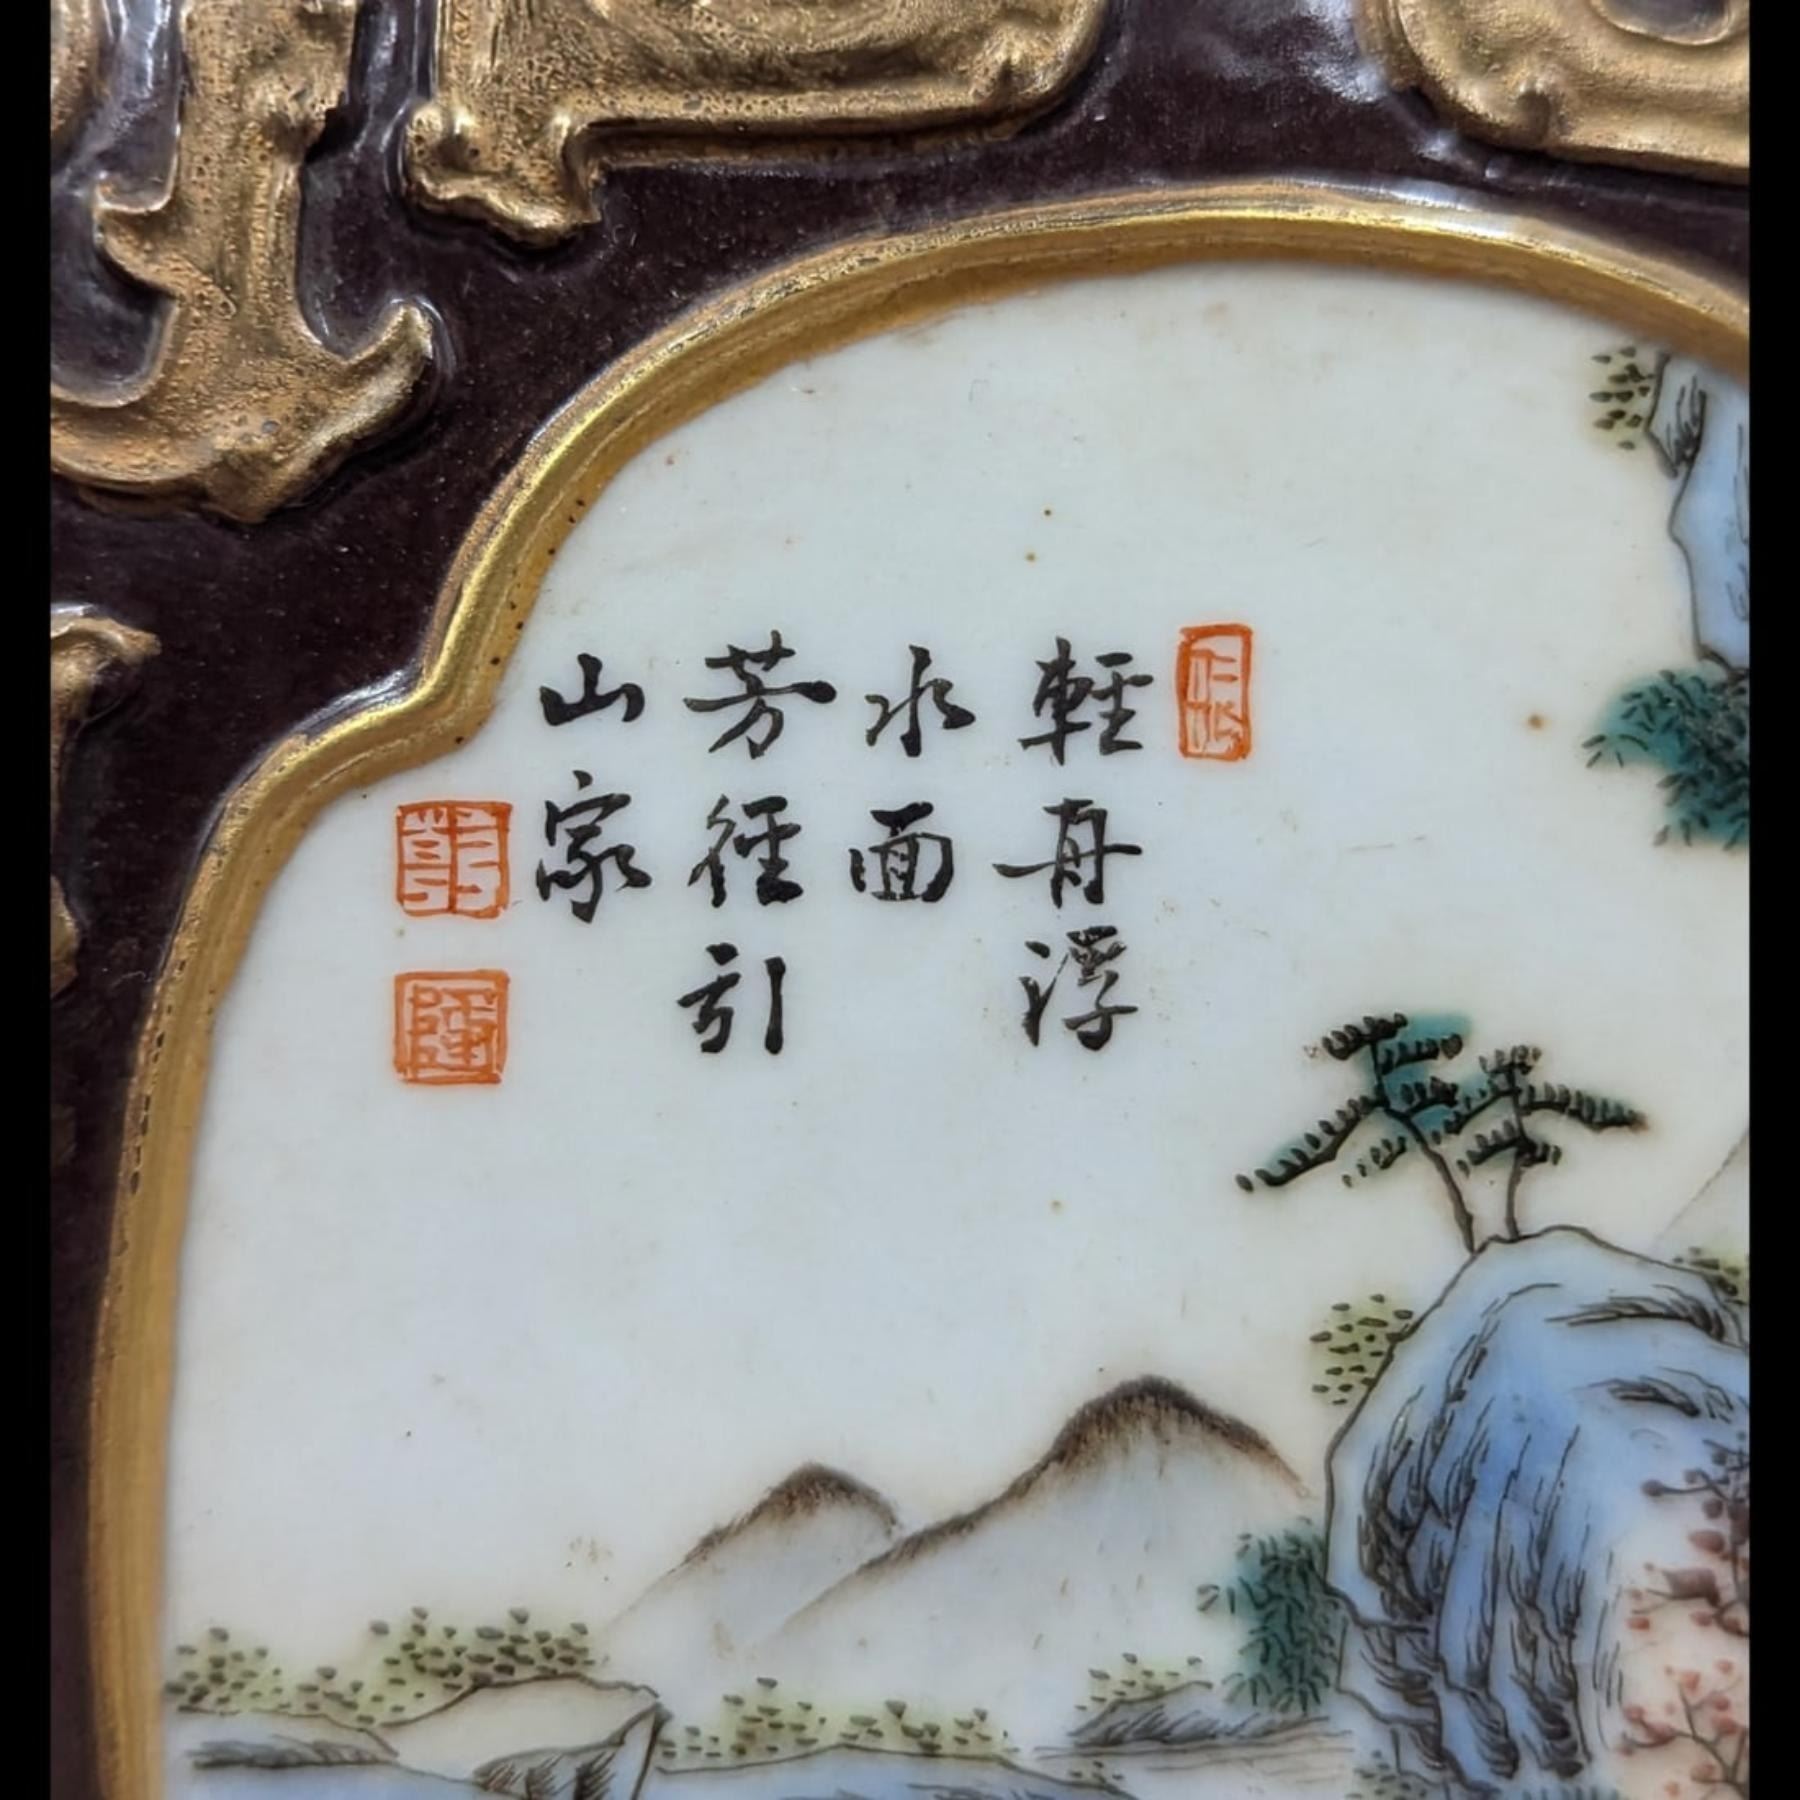 輕舟浮
水面
芳徑引
山家